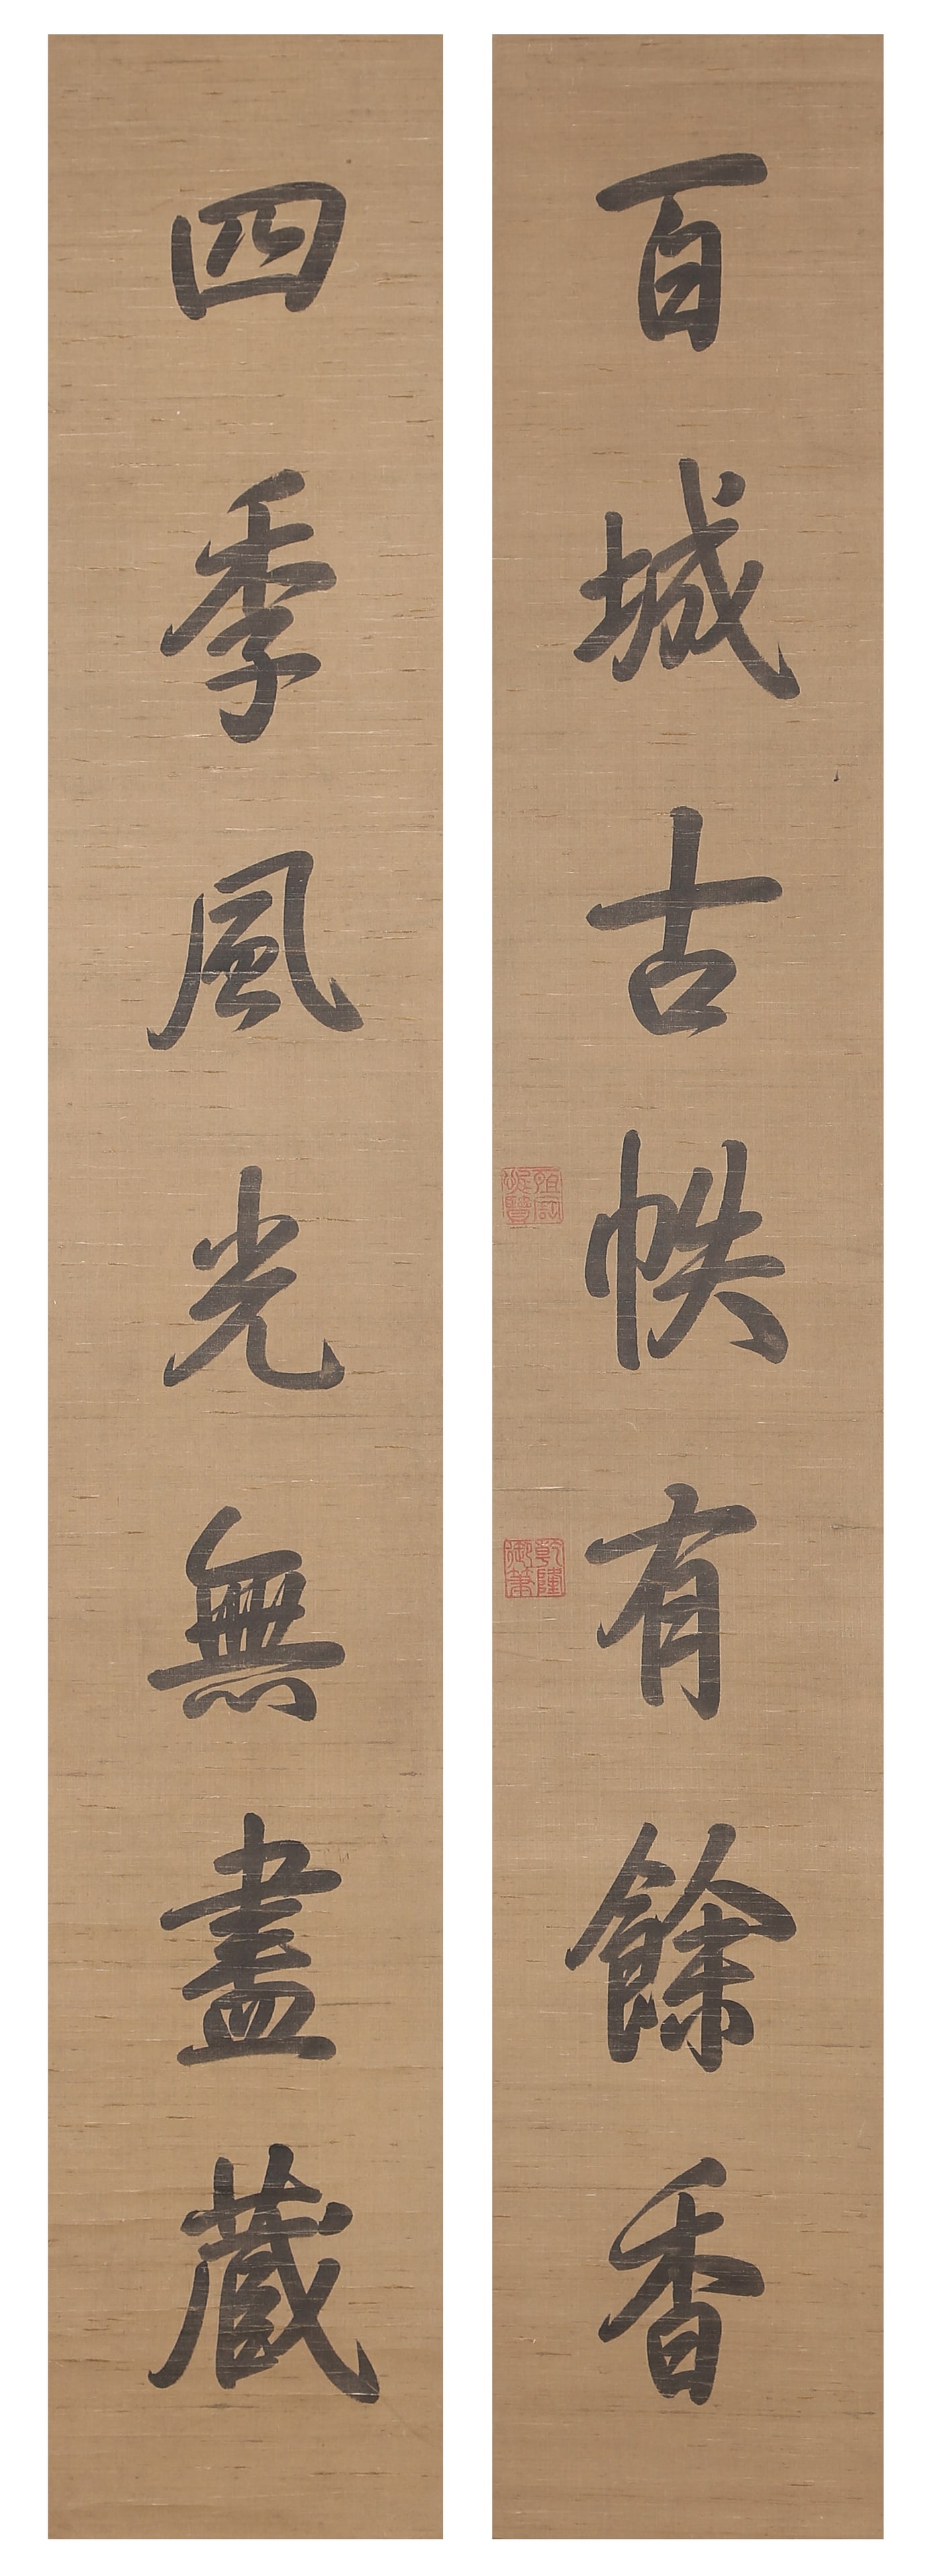 百城古帙有餘香
四季風光無盡藏
乾隆
御筆